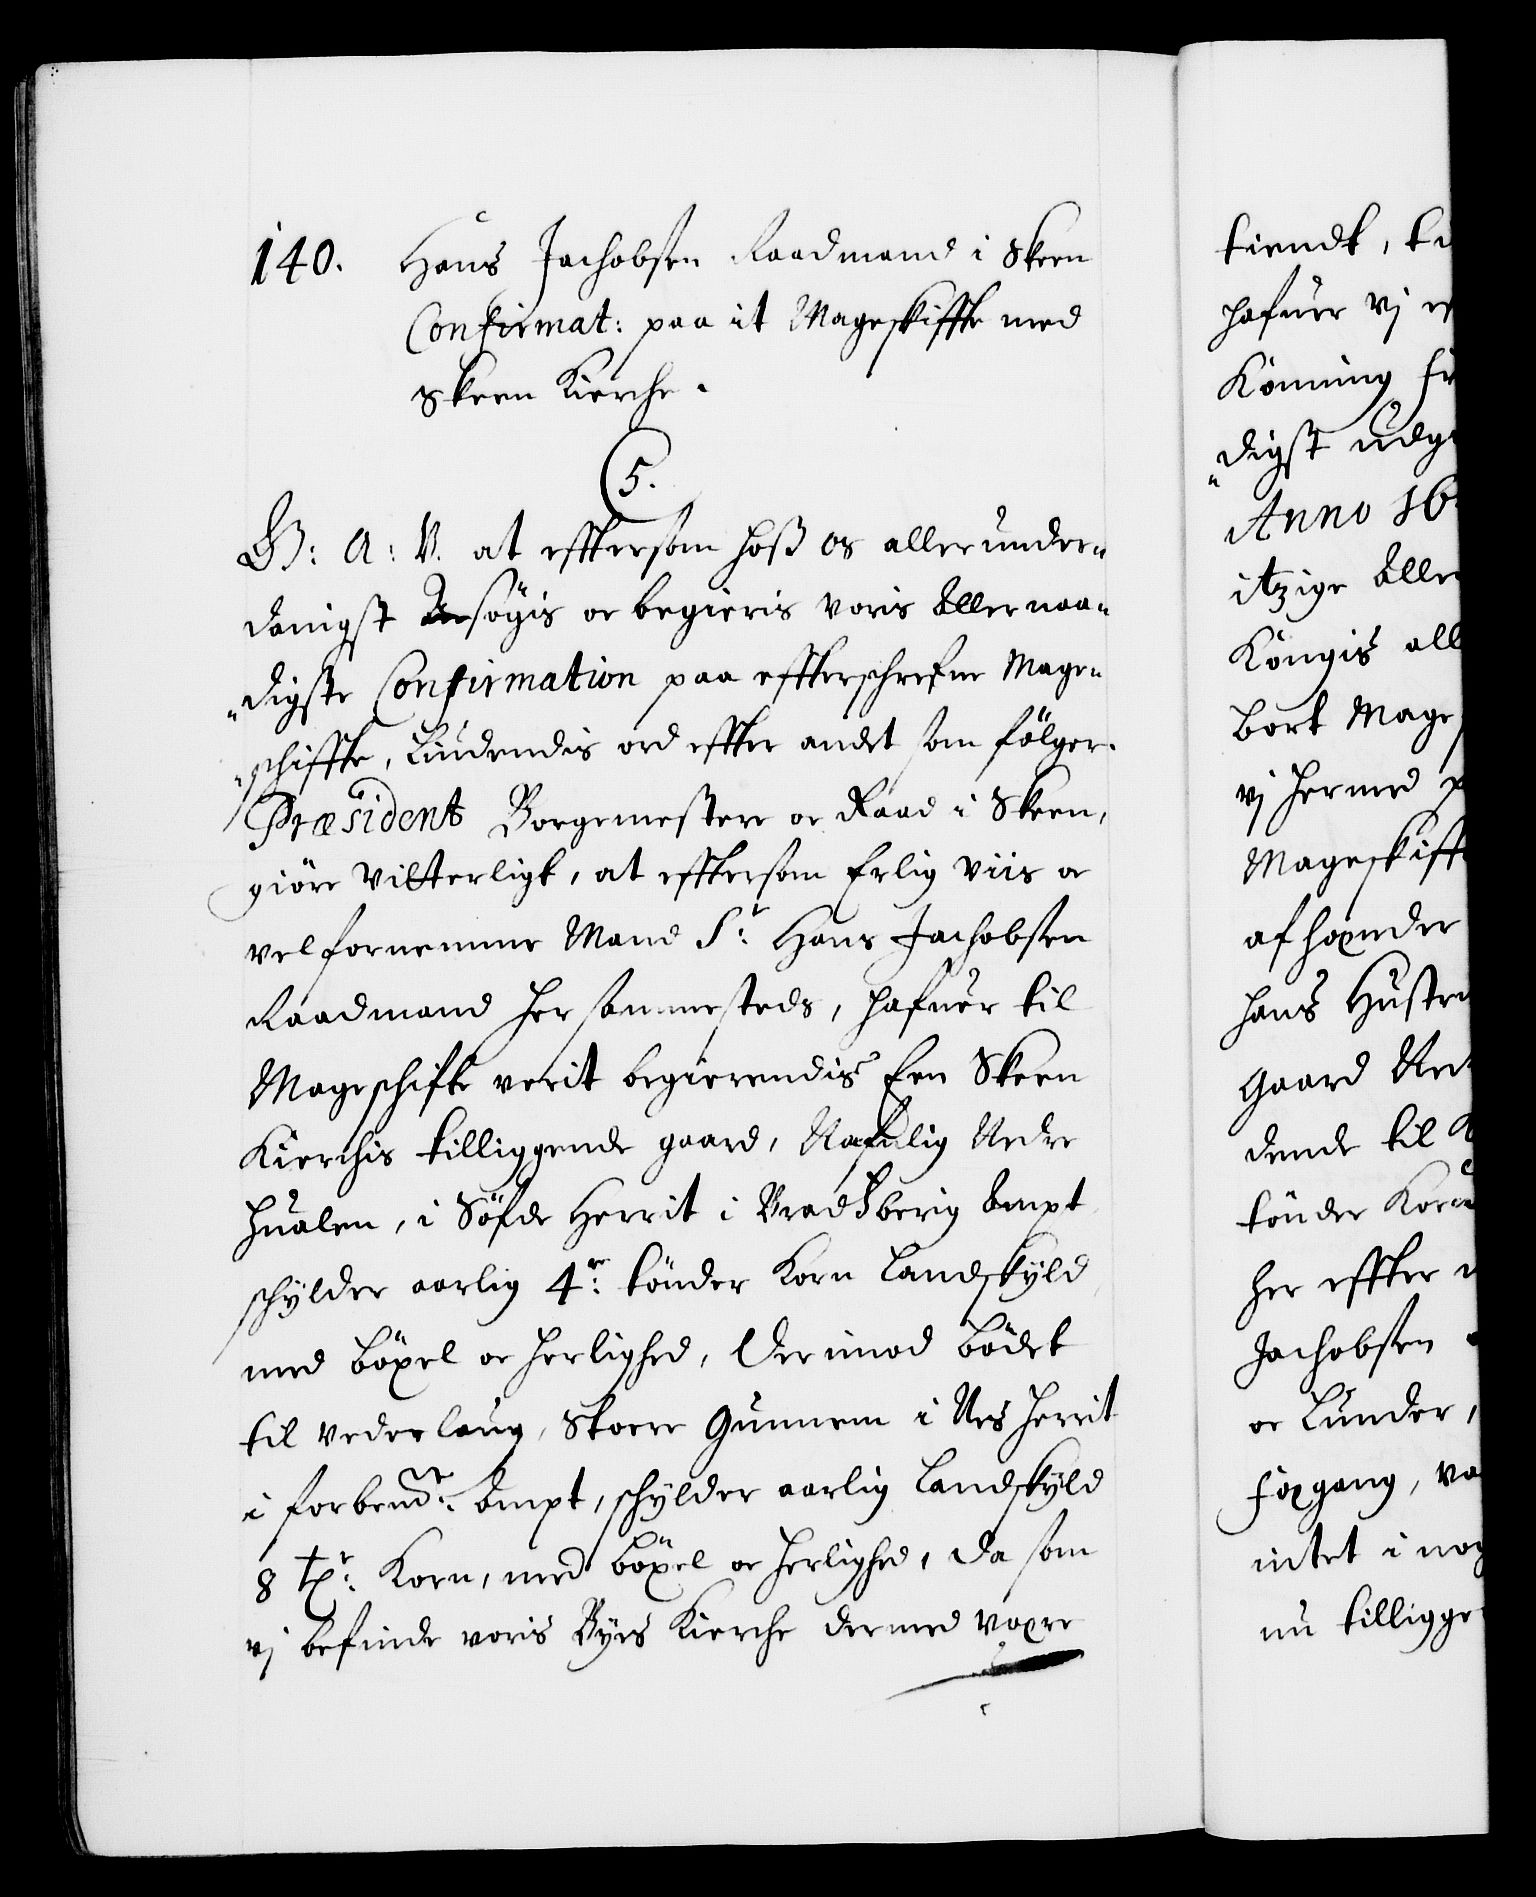 140. Hans Jachobsen Raadmand i Skeen
Confirmat: paa it Mageskiffte med
Skeen Kierche.
5.
G: A: V. at efftersom hoss os allerunder-
danigst søgis oc begieris voris Allernaa-
digste Confirmation paa effterschrefne Mage-
schiffte, Liudendis ord effter andet som følger.
Præsident Borgemestere oc Raad i Skeen,
giøre Vitterligt, at efftersom Erlig Viis oc
velfornemme Mand Sr: Hans Jachobsen
Raadmand her sammesteds, hafuer til
Mageschifte verit begierendis Een Skeen
Kierchis tilliggende gaard, Nafnlig Nedre
Hualen, i Søfde Herrit i Bradsberig Ampt
schylder aarlig 4re: tønder Korn Landskyld
med bøxel oc herlighed, Derimod bødet
til vederlaug, Stoere Gunnem i Nes Herrit
i forbemt: Ampt, schylder aarlig Landskyld
8 tr: Korn, med bøxel oc herlighed, da som
vj befinde voris Byes Kierche dermed være
tiendt, ti
hafuer vj
Konning Fr
digst udg
Anno 16
itzige Alle
Kongis all
bort Mage
vj hermed
Mageskift
afhænder
hans Hustr
Gaard Ned
dende til
tønder Korn
her effter
Jachobsen
oc Lunder,
foxgang, va
intet i nog
nu tilligge